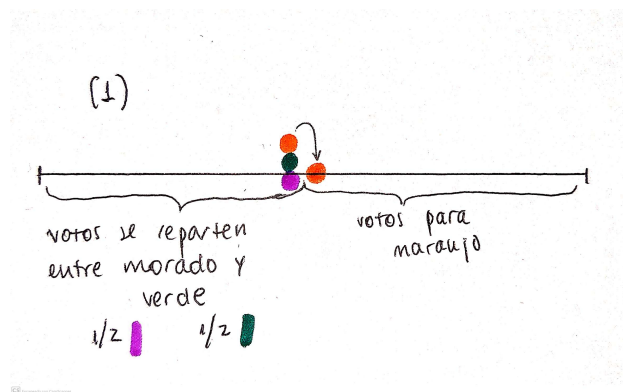 (1)
votos se reparten
entre morado y
verde
1/2 1/2
votos para
maraujo